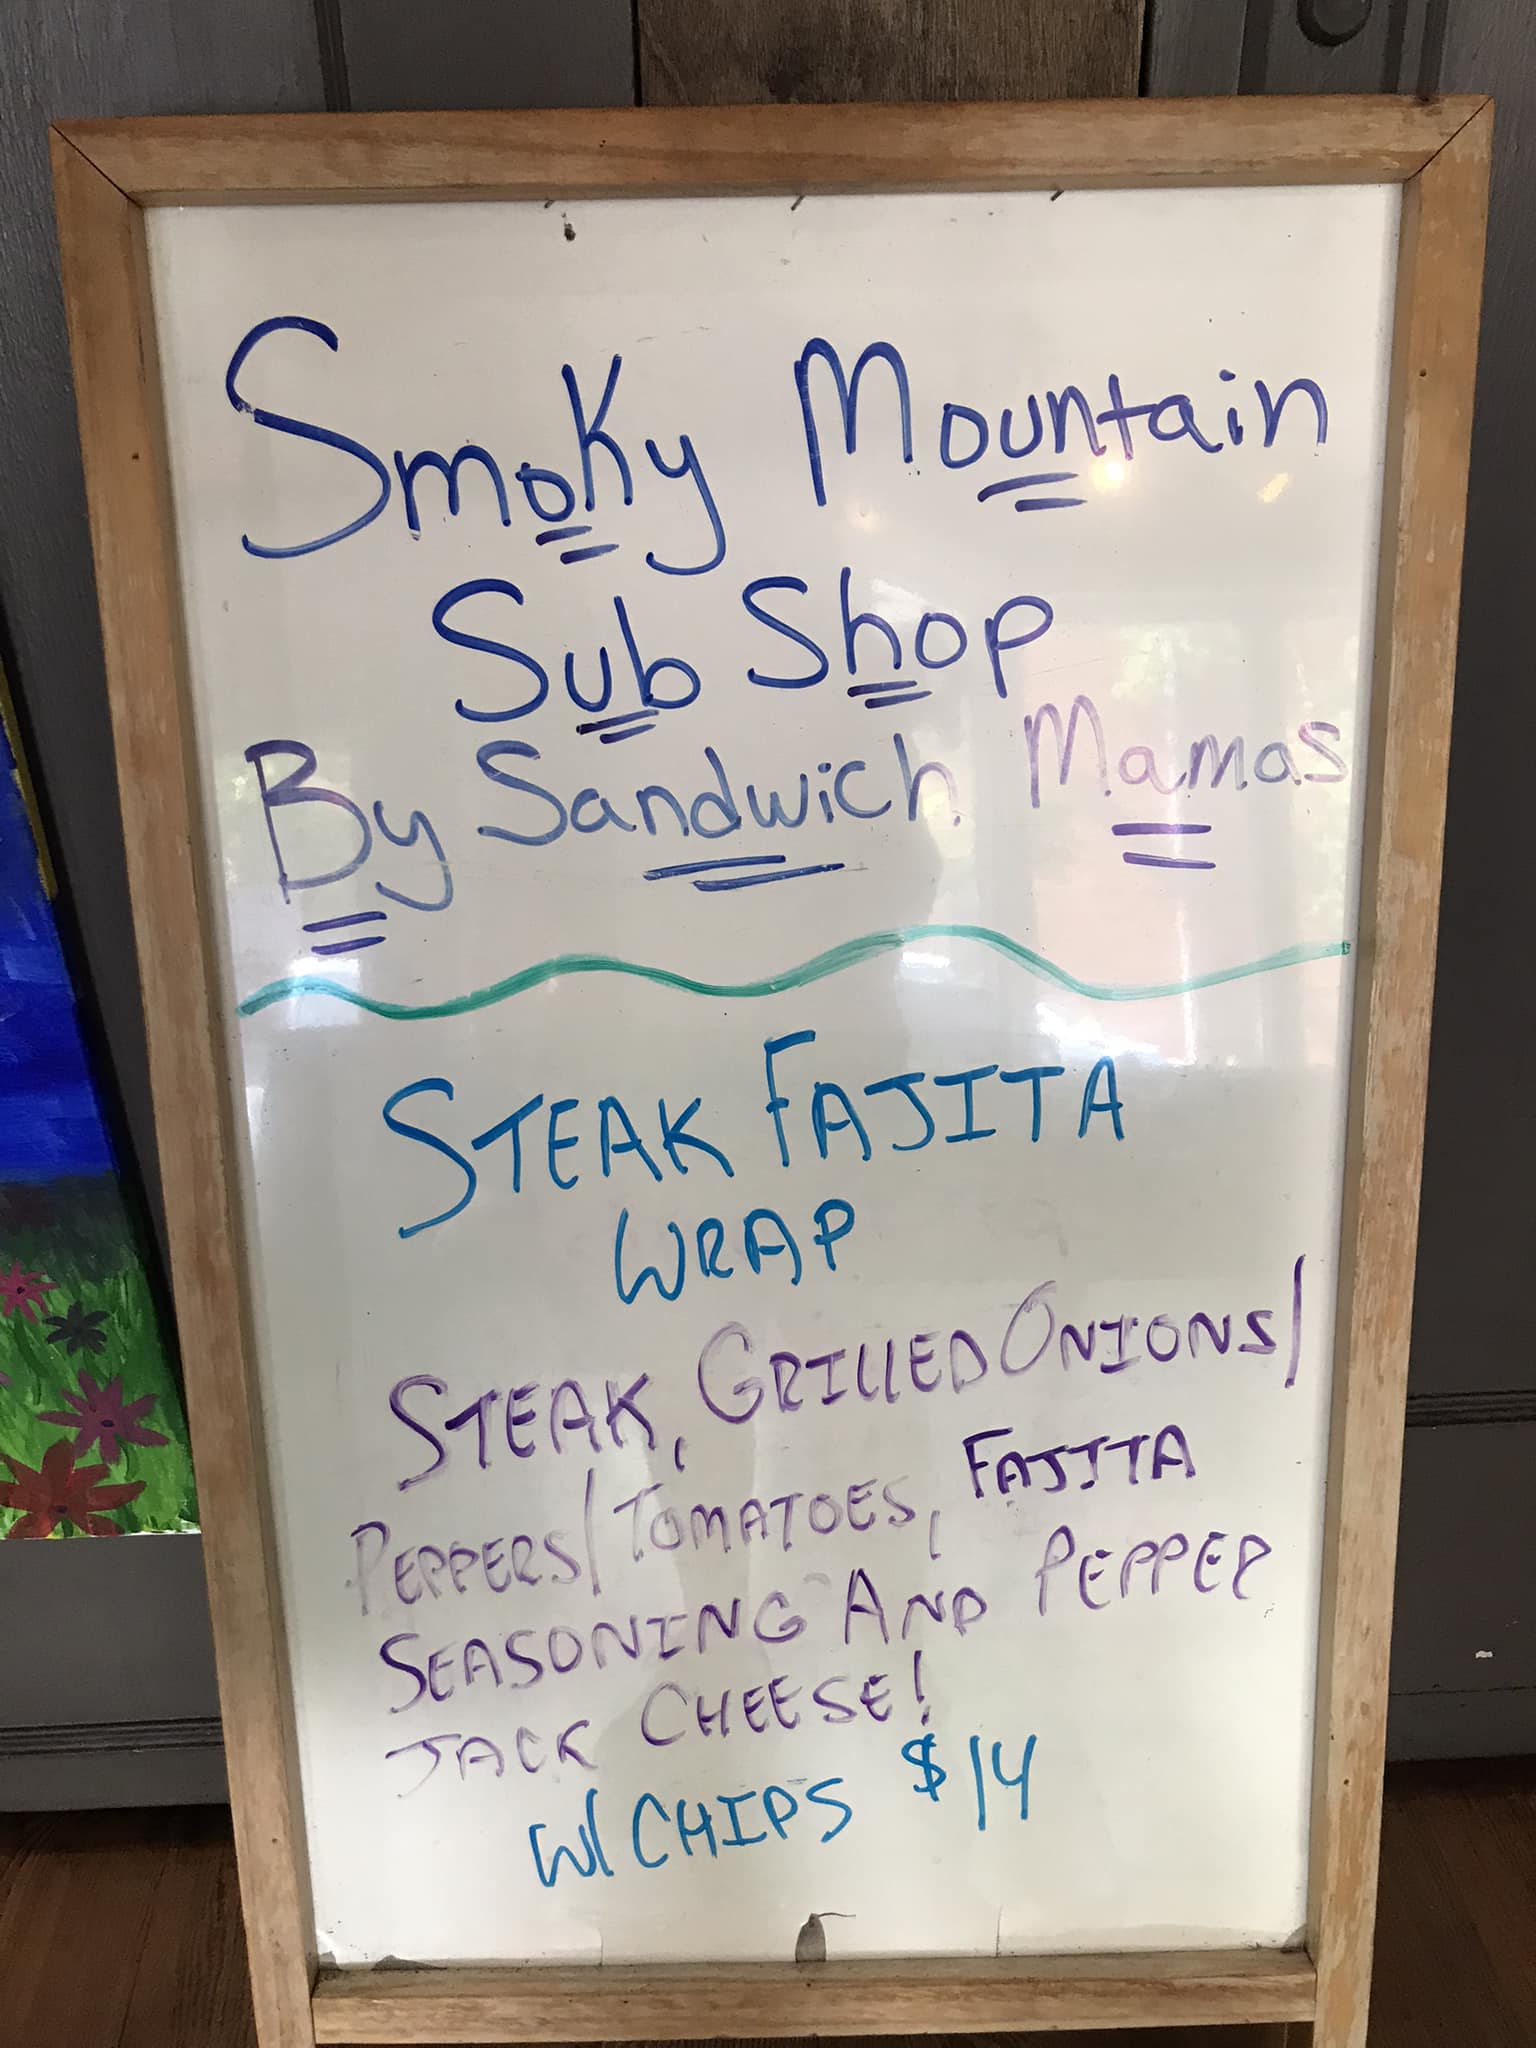 Smoky Mountain
Sub Shop
By Sandwich Mamas
STEAK FAJITA
WRAP
STEAK, GRILLED ONIONS/
PEPPERS/TOMATOES, FAJITA
SEASONING AND PEPPER
JACK CHEESE!
W/CHIPS $14